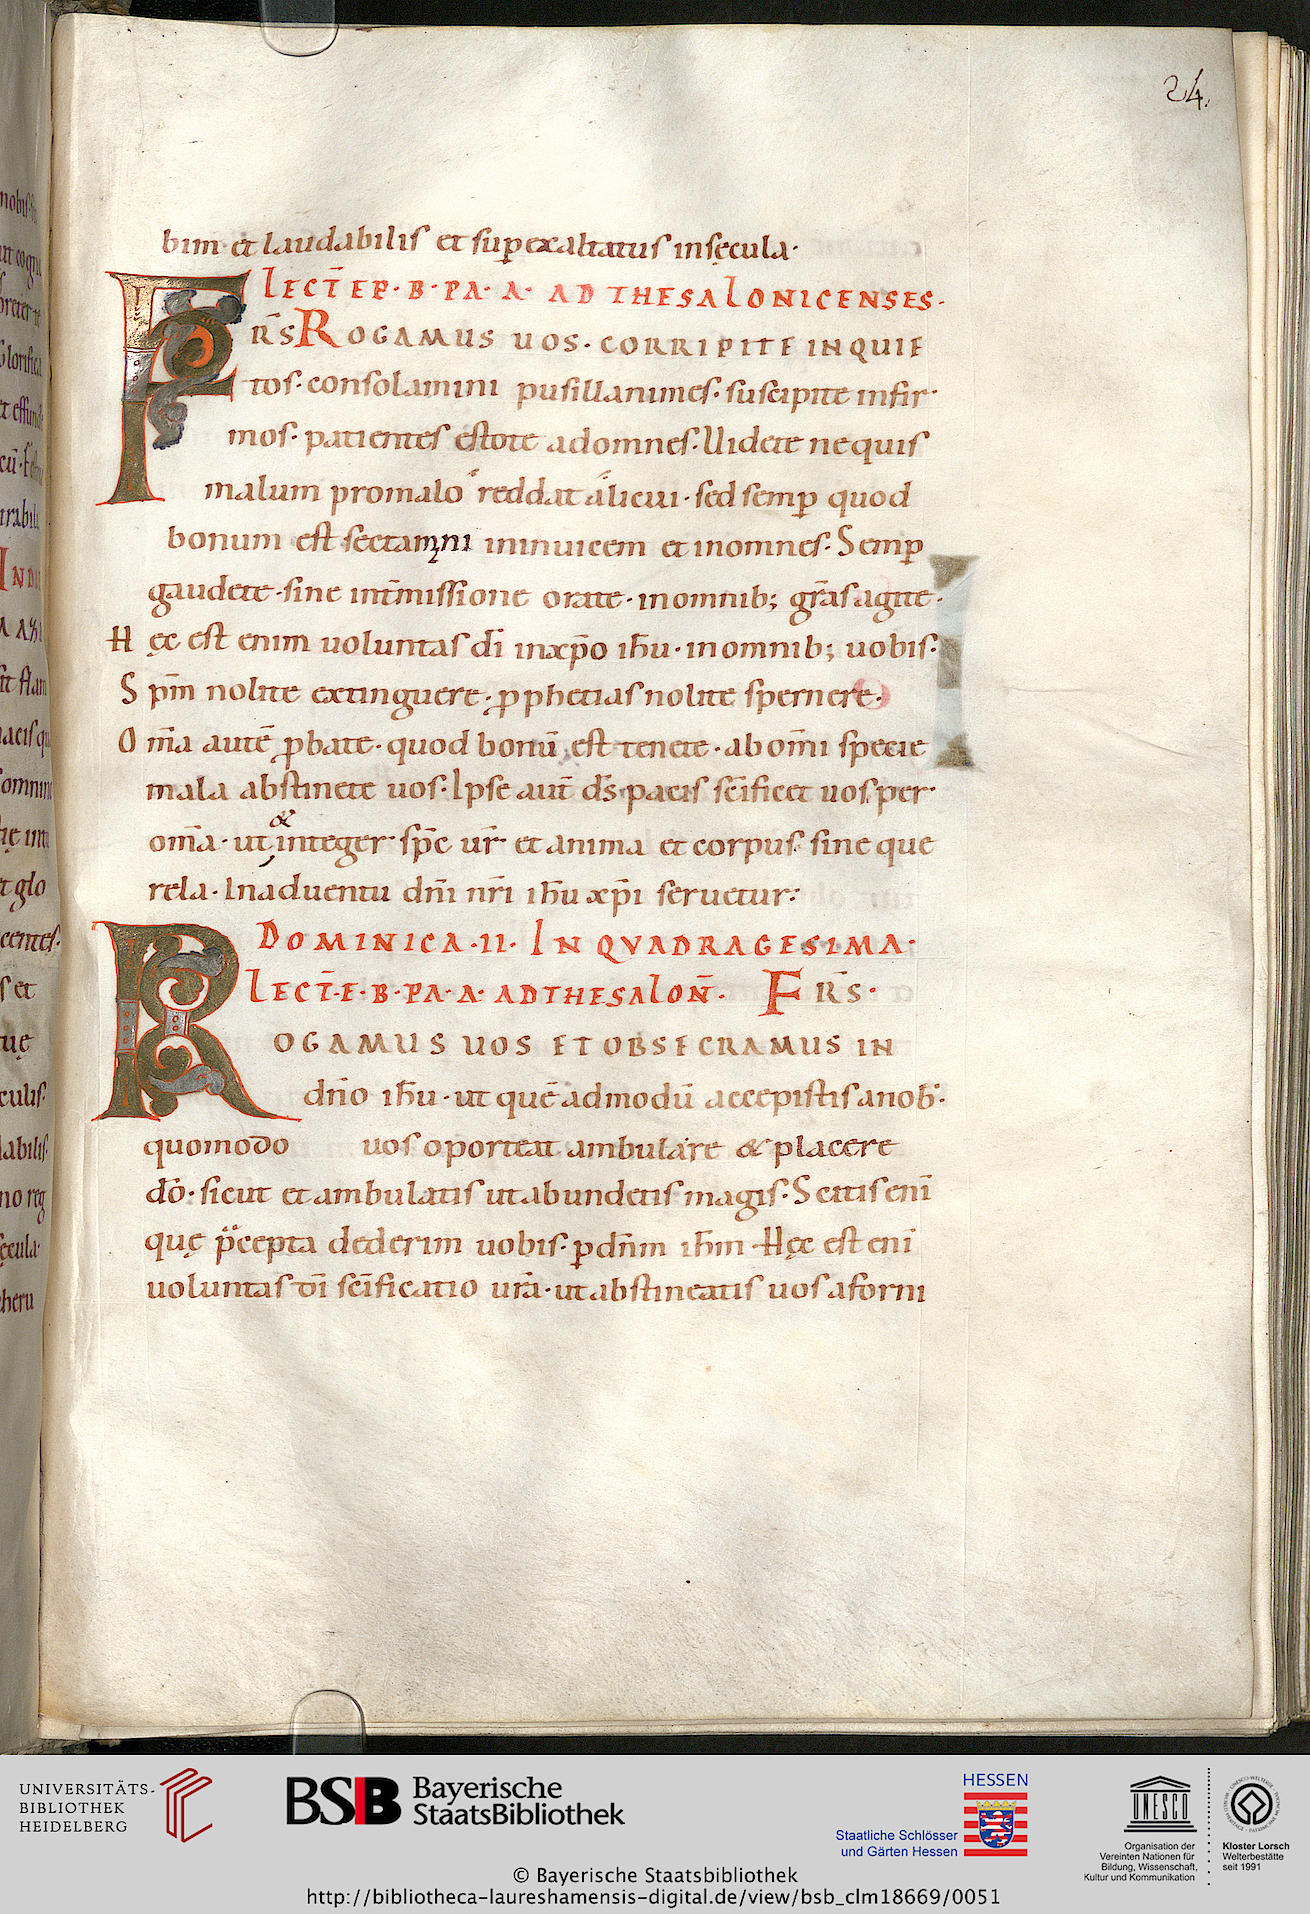 24.
bim et laudabilis et sup̱exaltatus insęcula·
LECT̄ EP̄·B·PA·A· AD THESALONICENSES·
FR̄S ROGAMUS UOS·CORRIPITE INQUIE
tos·consolamini pusillanimes·suscipite infir·
mos·patientes estote adomnes·Uidete nequis
malum promalo reddat alicui·sed semp̱ quod
bonum est sectamni ininuicem et inomnes·Semp̱
gaudete·sine int̄missione orate·inomnib; gr̄as agite·
Hęc est enim uoluntas dī inxp̄o ih̄u·inomnib; uobis·
Sp̄m nolite extinguere·ꝓphetias nolite spernere·
Om̄a autē ꝓbate·quod bonū est tenete·ab om̄i specie
mala abstinete uos·Ipse aut̄ d̄s pacis sc̄ificet uos per·
om̄a·ut & integer sp̄c ur̄ et anima et corpus sine que
rela·Inaduentu dn̄i nr̄i ih̄u xp̄i seruetur:
DOMINICA·II·IN QVADRAGESIMA·
LECT̄·E·B·PA·A·ADTHESALON̄· FR̄S·
ROGAMUS UOS ET OBSECRAMUS IN
dn̄o ih̄u·ut quē admodū accepistis anob·
quomodo uos oporteat ambulare & placere
dō·sicut et ambulatis ut abundetis magis·Scitis enī
quę p̄cepta dederim uobis·ꝑdn̄m ih̄m·Hęc est enī
uoluntas dī sc̄ificatio ur̄a·ut abstineatis uos aforni
nobis
glo
s et
culis
UNIVERSITÄTS-
BIBLIOTHEK
HEIDELBERG
BSB Bayerische
StaatsBibliothek
HESSEN
Staatliche Schlösser
und Gärten Hessen
UNESCO
Organisation der
Vereinten Nationen für
Bildung, Wissenschaft,
Kultur und Kommunikation
Kloster Lorsch
Welterbestätte
seit 1991
© Bayerische Staatsbibliothek
http://bibliotheca-laureshamensis-digital.de/view/bsb_clm18669/0051